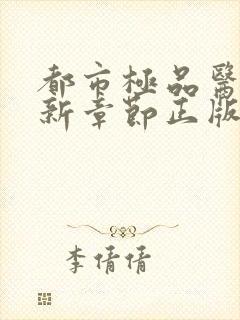 都市極品醫
新章節正版
李倩倩